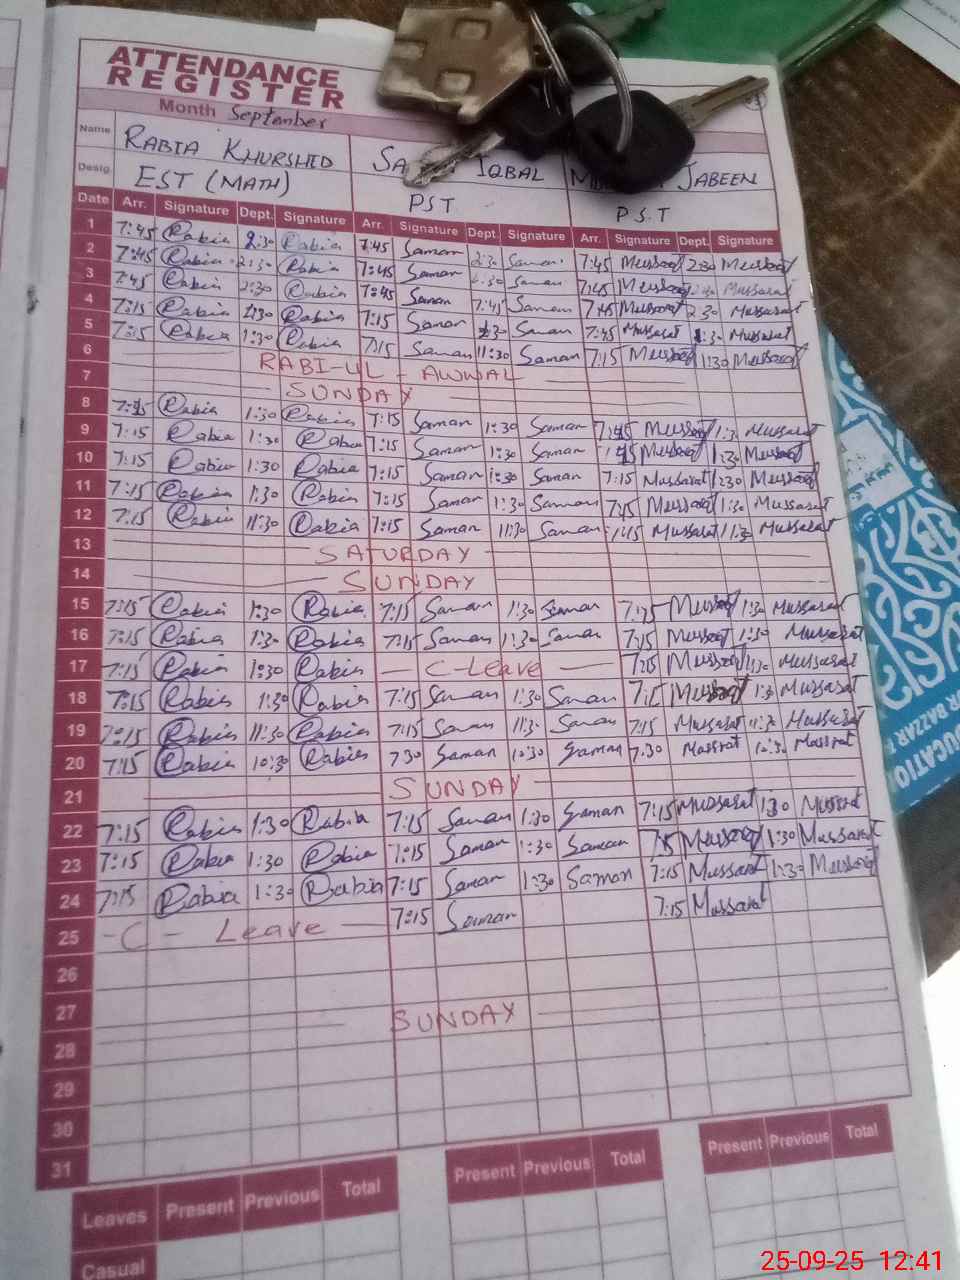 ATTENDANCE
REGISTER
Month September
Name RABIA KHURSHID IQBAL JABEEN
Desig. EST (MATH) PST P.S.T
Date Arr. Signature Dept. Signature Arr. Signature Dept. Signature Arr. Signature Dept. Signature
1 7:45 Rabia 2:30 Rabia 7:45 Saman 2:30 Saman 7:45 Mussarat 2:30 Mussarat
2 7:45 Rabia 2:30 Rabia 7:45 Saman 2:30 Saman 7:45 Mussarat Mussarat
3 7:45 Rabia 2:30 Rabia 7:45 Saman 7:45 Saman 7:45 Mussarat 2:30 Mussarat
4 7:15 Rabia 1:30 Rabia 7:15 Saman 1:30 Saman 7:45 Mussarat 1:30 Mussarat
5 7:15 Rabia 1:30 Rabia 7:15 Saman 11:30 Saman 7:15 Mussarat 1:30 Mussarat
6 RABI-UL-AWWAL
7 SUNDAY
8 7:15 Rabia 1:30 Rabia 7:15 Saman 1:30 Saman 7:15 Mussarat 1:30 Mussarat
9 7:15 Rabia 1:30 Rabia 7:15 Saman 1:30 Saman 7:15 Mussarat 1:30 Mussarat
10 7:15 Rabia 1:30 Rabia 7:15 Saman 1:30 Saman 7:15 Mussarat 1:30 Mussarat
11 7:15 Rabia 1:30 Rabia 7:15 Saman 1:30 Saman 7:15 Mussarat 1:30 Mussarat
12 7:15 Rabia 11:30 Rabia 7:15 Saman 11:30 Saman 7:15 Mussarat 11:30 Mussarat
13 SATURDAY
14 SUNDAY
15 7:15 Rabia 1:30 Rabia 7:15 Saman 1:30 Saman 7:15 Mussarat 1:30 Mussarat
16 7:15 Rabia 1:30 Rabia 7:15 Saman 1:30 Saman 7:15 Mussarat 1:30 Mussarat
17 7:15 Rabia 1:30 Rabia C-Leave 7:15 Mussarat 1:30 Mussarat
18 7:15 Rabia 1:30 Rabia 7:15 Saman 1:30 Saman 7:15 Mussarat 1:30 Mussarat
19 7:15 Rabia 11:30 Rabia 7:15 Saman 11:30 Saman 7:15 Mussarat 11:30 Mussarat
20 7:15 Rabia 10:30 Rabia 7:30 Saman 10:30 Saman 7:30 Massrat 10:30 Massrat
21 SUNDAY
22 7:15 Rabia 1:30 Rabia 7:15 Saman 1:30 Saman 7:15 Mussarat 1:30 Mussrat
23 7:15 Rabia 1:30 Rabia 7:15 Saman 1:30 Saman 7:15 Mussarat 1:30 Mussarat
24 7:15 Rabia 1:30 Rabia 7:15 Saman 1:30 Saman 7:15 Mussarat 1:30 Mussarat
25 -C- Leave 7:15 Saman 7:15 Mussarat
26
27
28 SUNDAY
29
30
31
Leaves Present Previous Total Present Previous Total Present Previous Total
Casual
BAZZAR
25-09-25 12:41